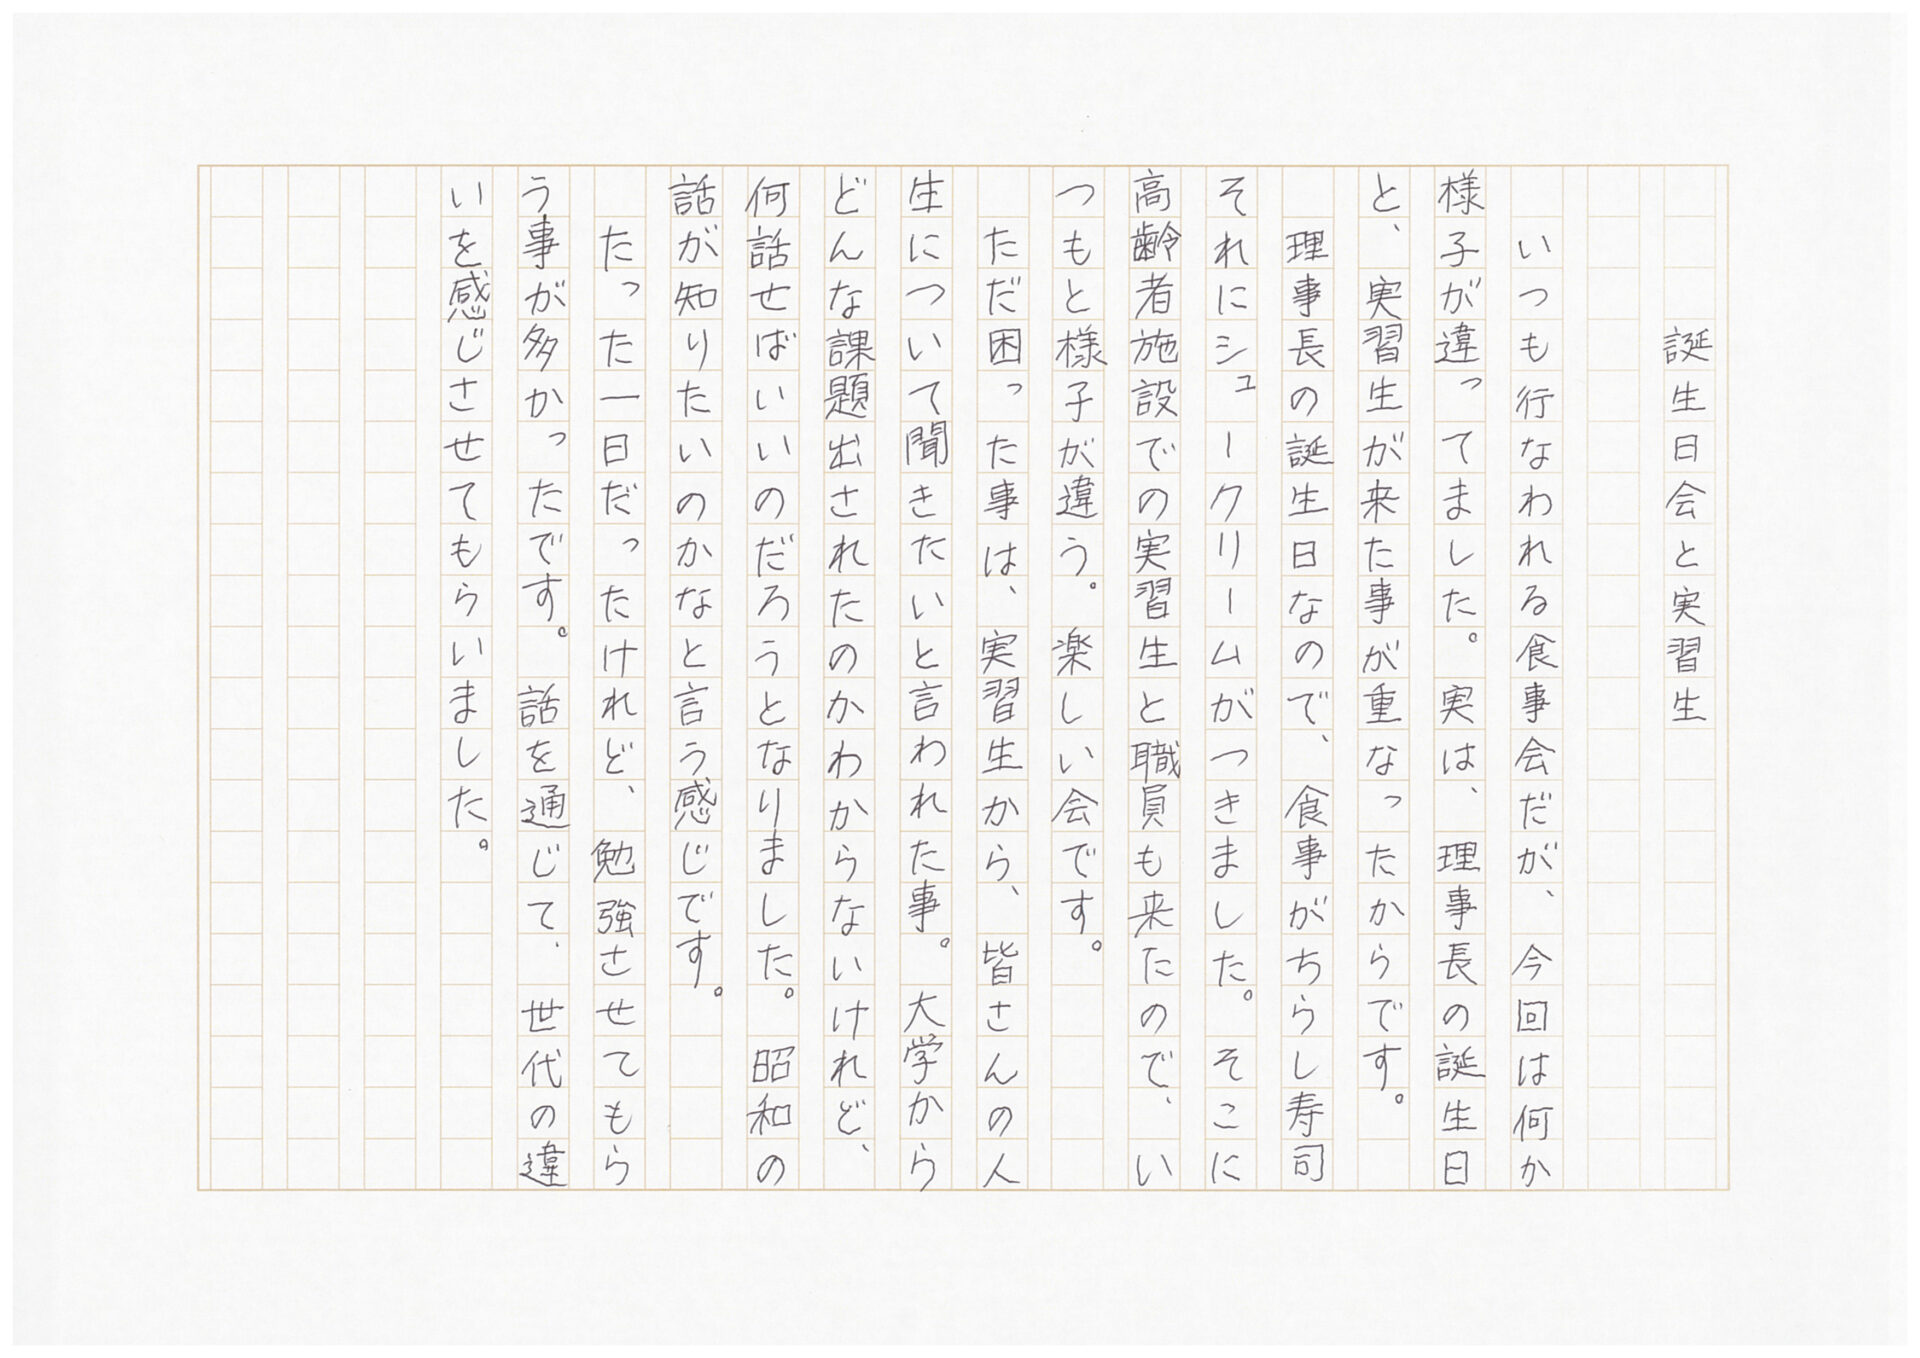 誕生日会と実習生
いつも行なわれる食事会だが、今回は何か
様子が違ってました。実は、理事長の誕生日
と、実習生が来た事が重なったからです。
理事長の誕生日なので、食事がちらし寿司
それにシュークリームがつきました。そこに
高齢者施設での実習生と職員も来たので、い
つもと様子が違う。楽しい会です。
ただ困った事は、実習生から、皆さんの人
生について聞きたいと言われた事。大学から
どんな課題出されたのかわからないけれど、
何話せばいいのだろうとなりました。昭和の
話が知りたいのかなと言う感じです。
たった一日だったけれど、勉強させてもら
う事が多かったです。話を通じて、世代の違
いを感じさせてもらいました。